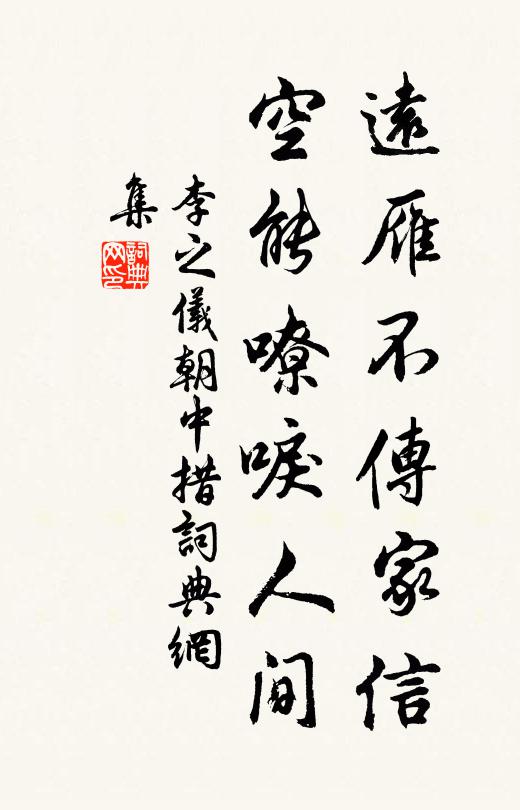 遠雁不傳家信
空能嘹唳人间
李之儀朝中措詞典網
集
詞典
网印